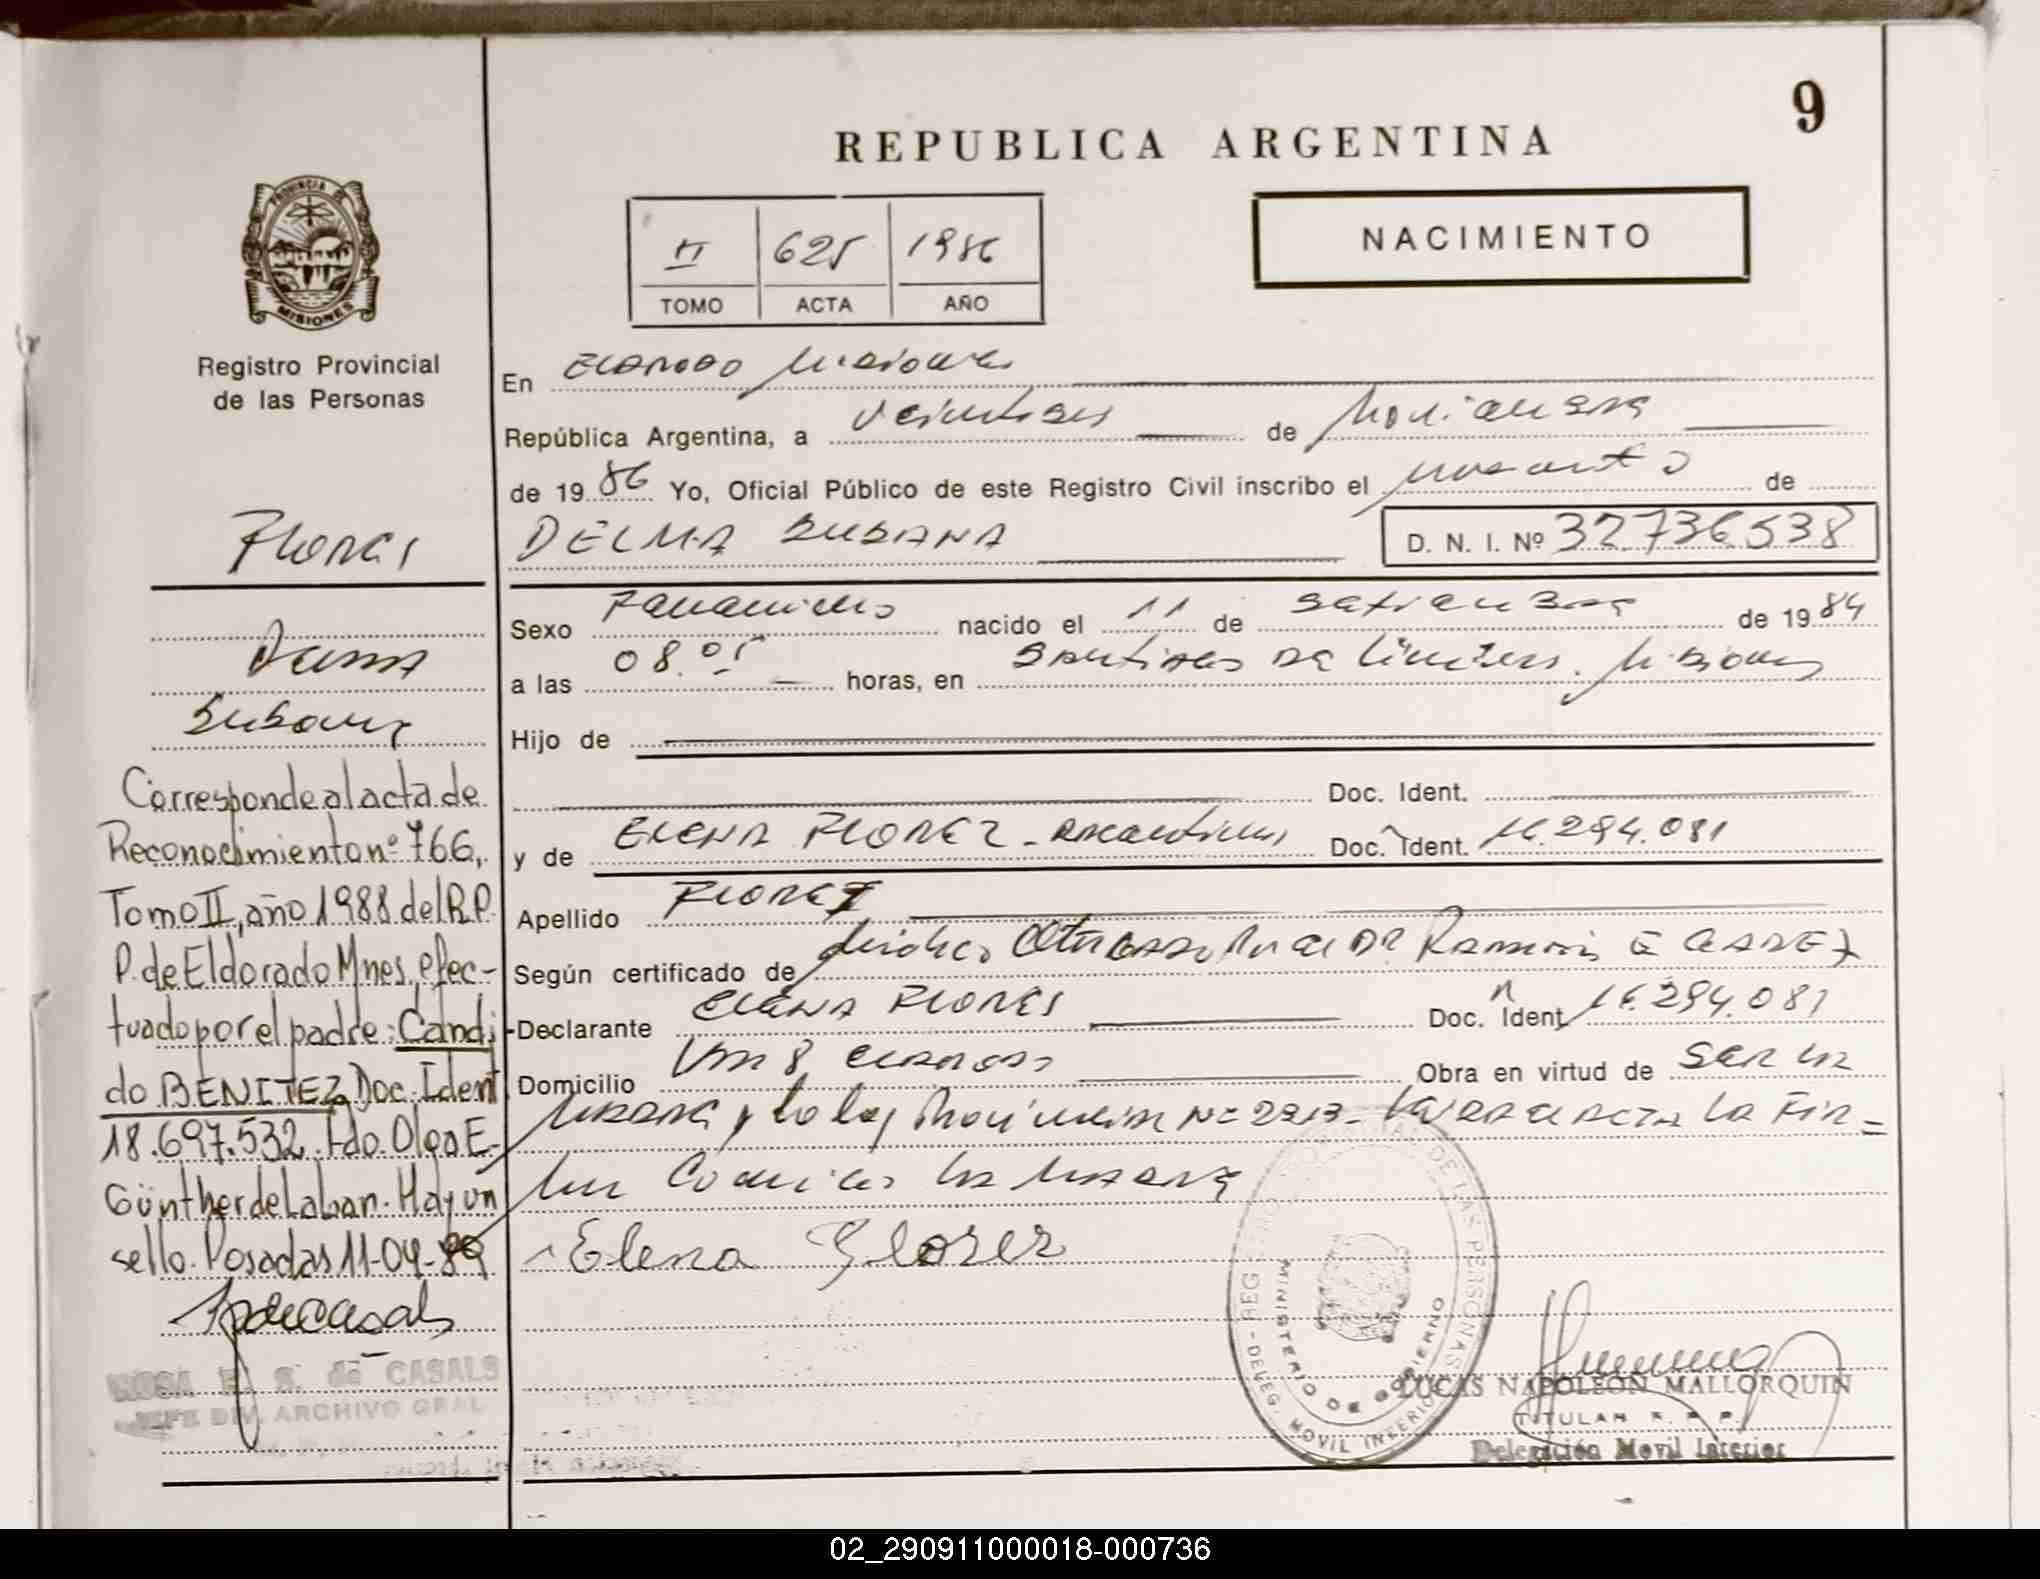 9
REPUBLICA ARGENTINA
PROVINCIA DE
MISIONES
Registro Provincial
de las Personas
II 625 1986
TOMO ACTA AÑO
NACIMIENTO
En Eldorado Misiones
República Argentina, a veintiseis de Noviembre
de 1986 Yo, Oficial Público de este Registro Civil inscribo el nacimiento de
DELMA SUSANA
D. N. I. Nº 32736538
Sexo Femenino nacido el 11 de Setiembre de 1984
a las 08.05 horas, en Santiago de Liniers. Misiones
Hijo de
Doc. Ident.
y de ELENA FLOREZ - Argentina Doc. Ident. 16.294.081
Apellido FLOREZ
Según certificado de medico Dr Ramon
Declarante ELENA FLORES Doc. Ident 16.294.081
Domicilio Km 8 Eldorado Obra en virtud de Ser la
madre y la ley Provincial Nº la Fir=
la madre
Elena Florez
Flores
Delma
Susana
Corresponde al acta de
Reconocimiento nº 766,
Tomo II, año 1988 del R.P.
P. de Eldorado Mnes, efec-
tuado por el padre: Candi-
do BENITEZ, Doc. Ident
18.697.532. Fdo. Olga E.
Günther de Laban. Hay un
sello. Posadas 11-04-89
ROSA E. S. de CASALS
JEFE DIV. ARCHIVO GRAL
DE LAS PERSONAS
MINISTERIO DE GOBIERNO
DELEG. MOVIL INTERIOR
LUCAS NAPOLEON MALLORQUIN
TITULAR R. P. P.
Delegación Movil Interior
02_290911000018-000736